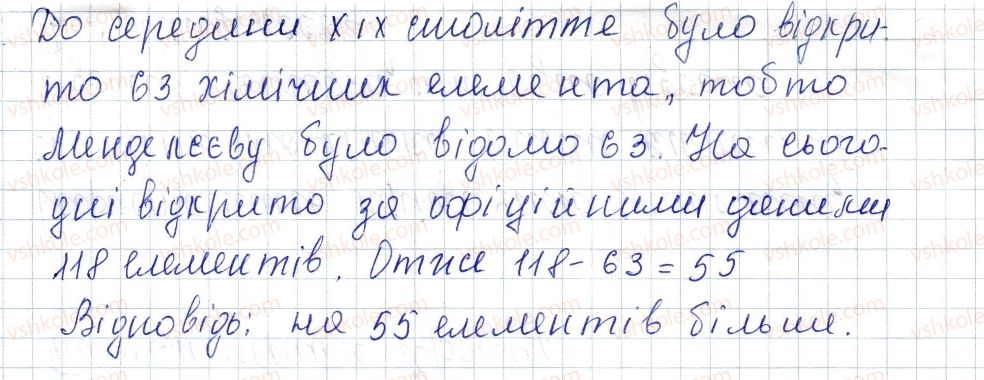 До середини XIX століття було відкри-
то 63 хімічних елемента, тобто
Менделєєву було відомо 63. На сього-
дні відкрито за офіційними даними
118 елементів. Отже 118 - 63 = 55
Відповідь: на 55 елементів більше.